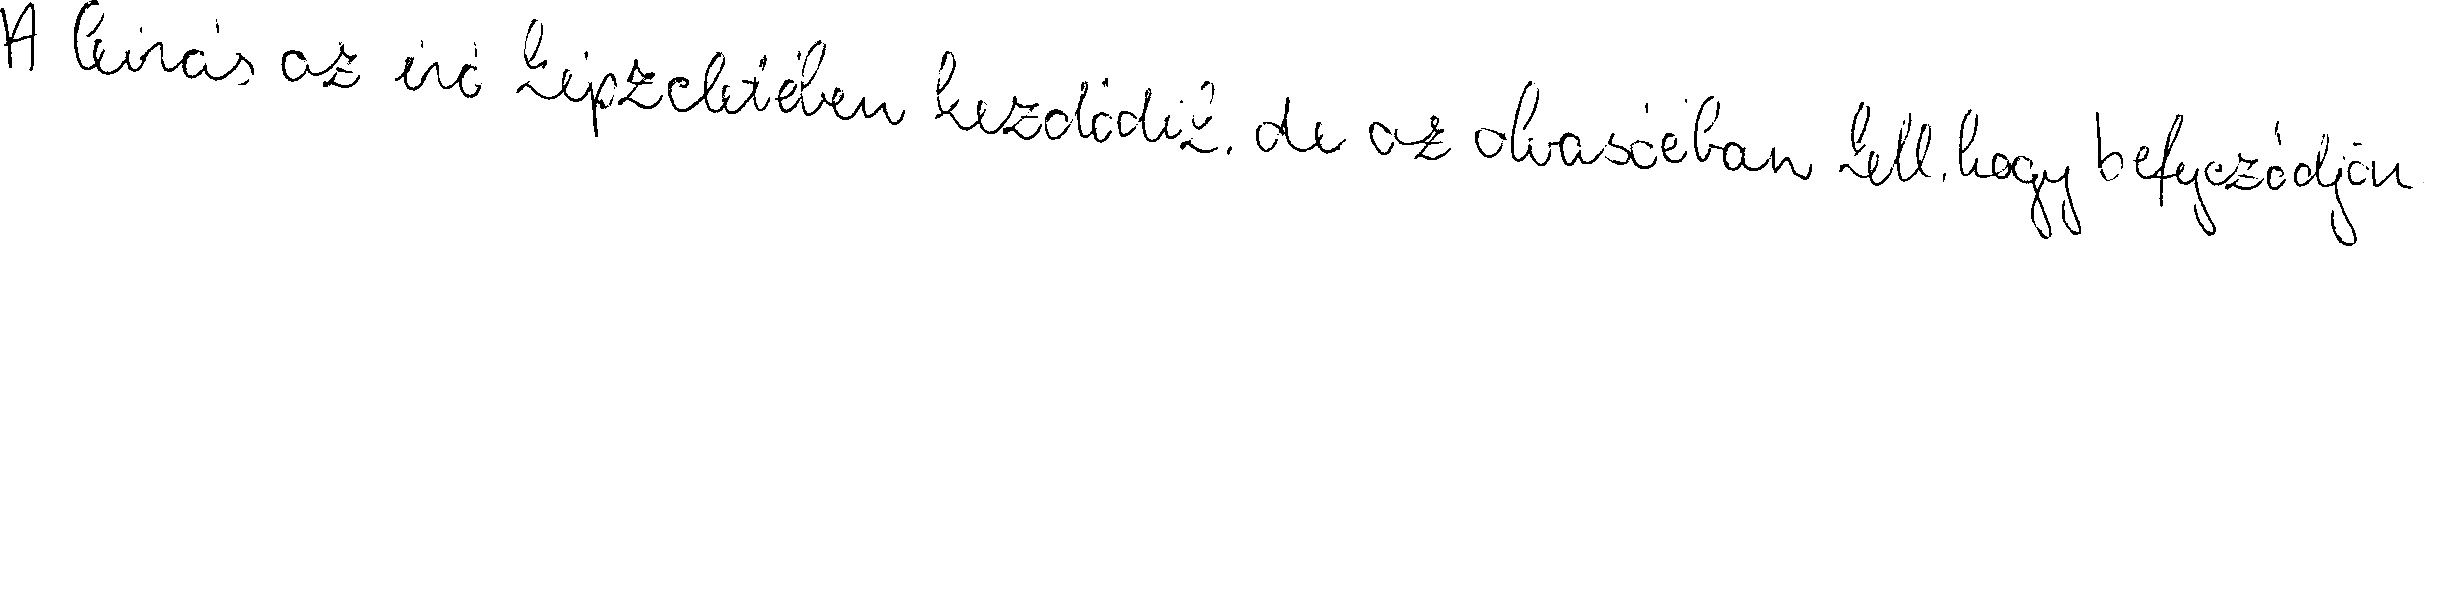 A leírás az író képzeletében kezdődik, de az olvasóéban kell, hogy befejeződjön